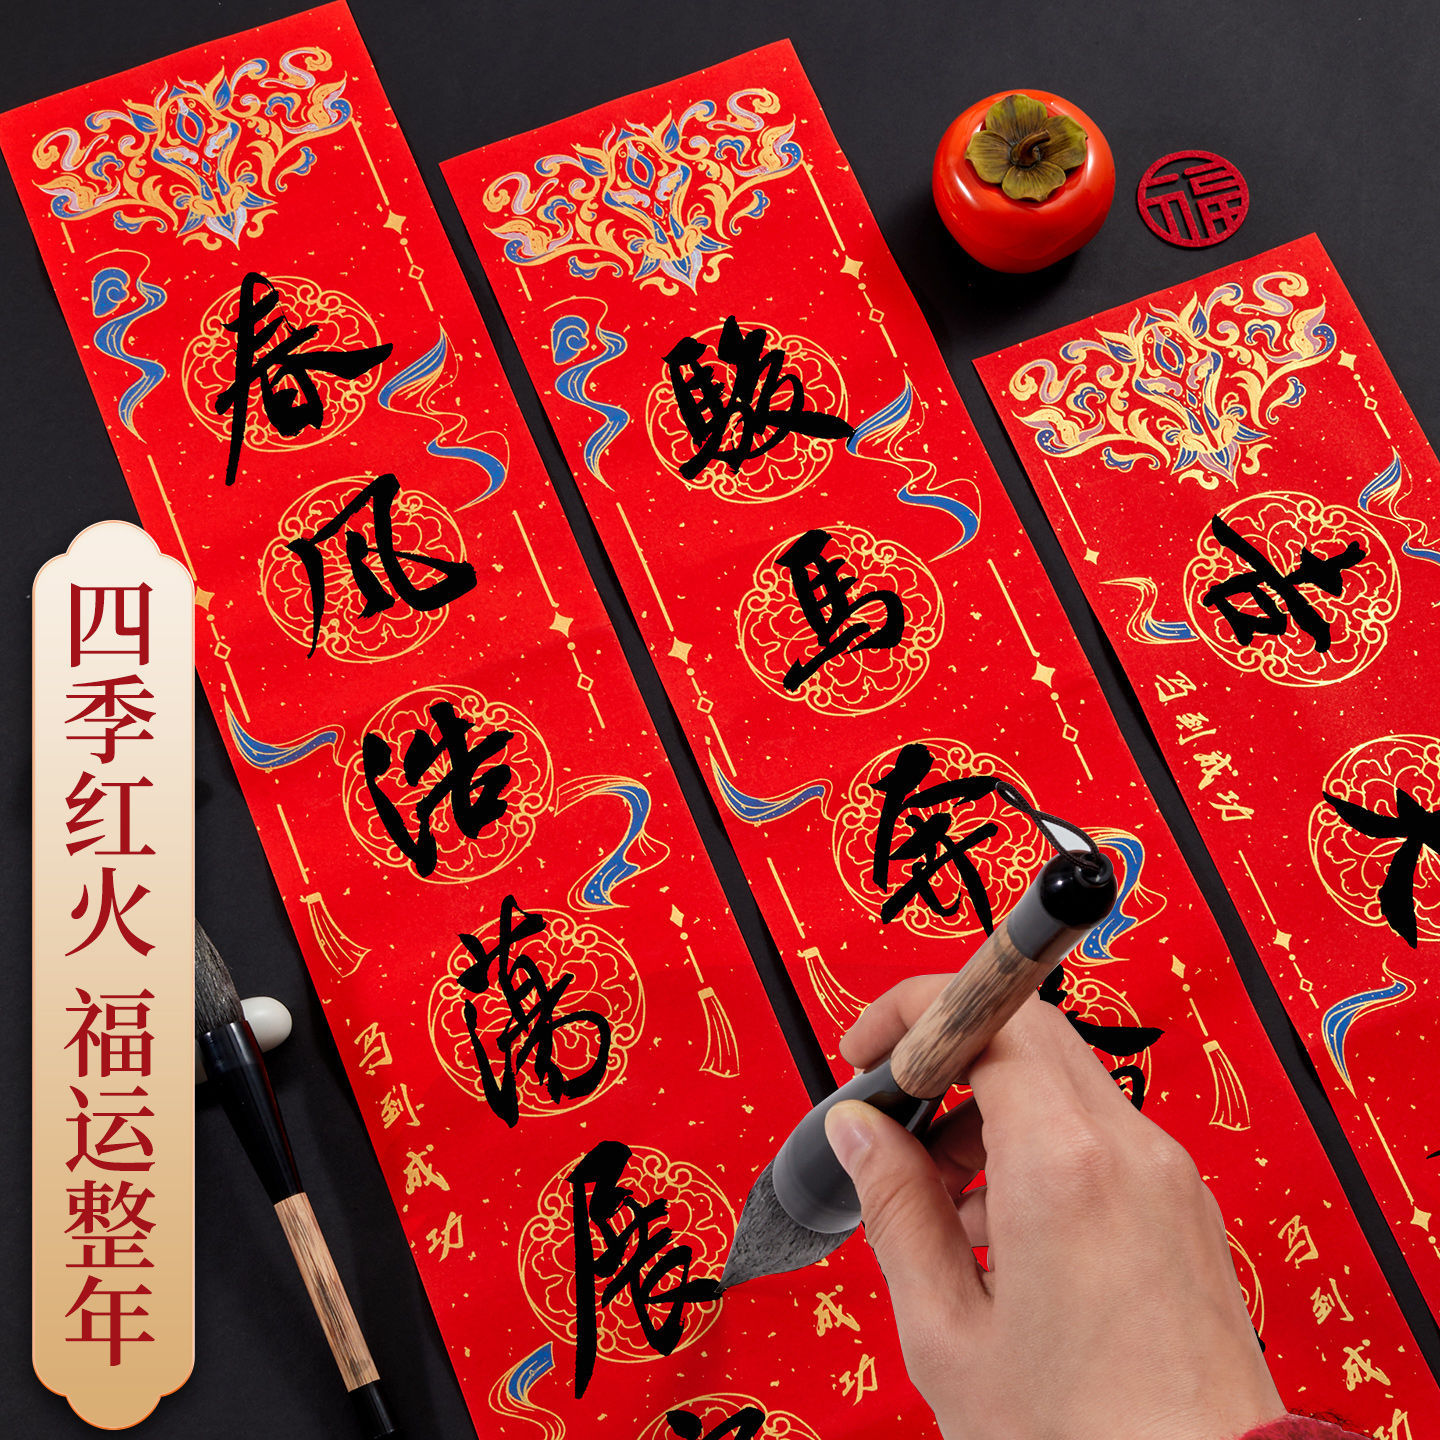 四季红火 福运整年
春风浩荡展
马到成功
骏马奔
成功
马到成
马到成功
福